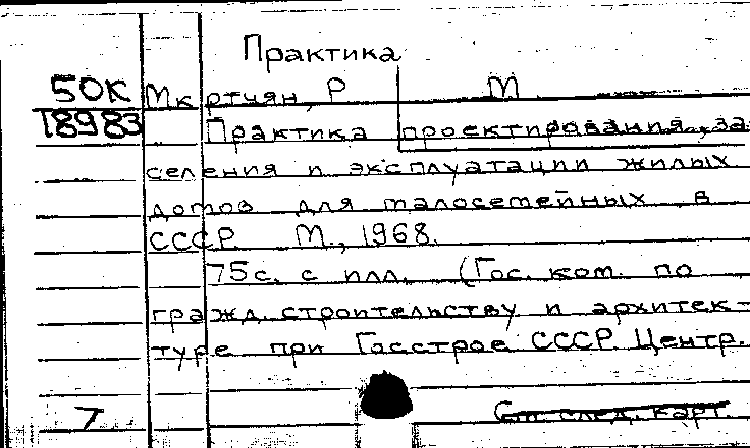 Практика
50К Мкртчян, Р М
18983 Практика проектирования, за-
селения и эксплуатации жилых
домов для малосемейных в
СССР М., 1968.
75с. с илл. (Гос. ком. по
гражд. строительству и архитек-
туре при Госстрое СССР. Центр.
7 См след. карт.